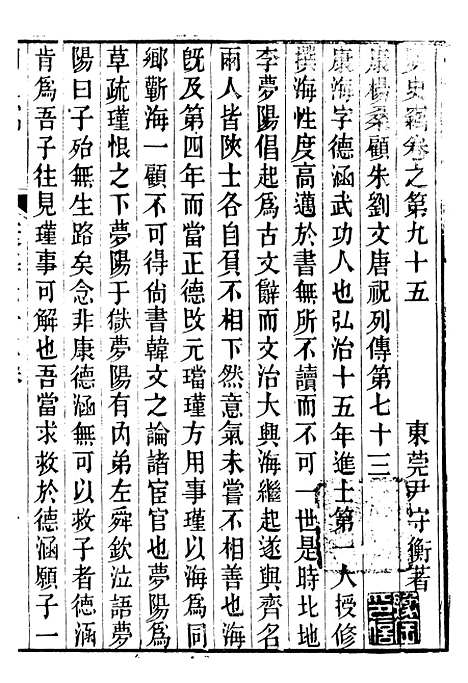 史竊卷之第九十五 東莞尹守衡著
康楊桑顧朱劉文唐祝列傳第七十三
康海字德涵武功人也弘治十五年進士第一人授修
撰海性度高邁於書無所不讀而不可一世是時北地
李夢陽倡起爲古文辭而文治大興海繼起遂與齊名
兩人皆陝士各自負不相下然意氣未嘗不相善也海
旣及第四年而當正德改元璫瑾方用事瑾以海爲同
鄉蘄海一顧不可得尙書韓文之論諸宦官也夢陽爲
草疏瑾恨之下夢陽于獄夢陽有內弟左舜欽泣語夢
陽曰子殆無生路矣念非康德涵無可以救子者德涵
肯爲吾子往見瑾事可解也吾當求救於德涵願子一